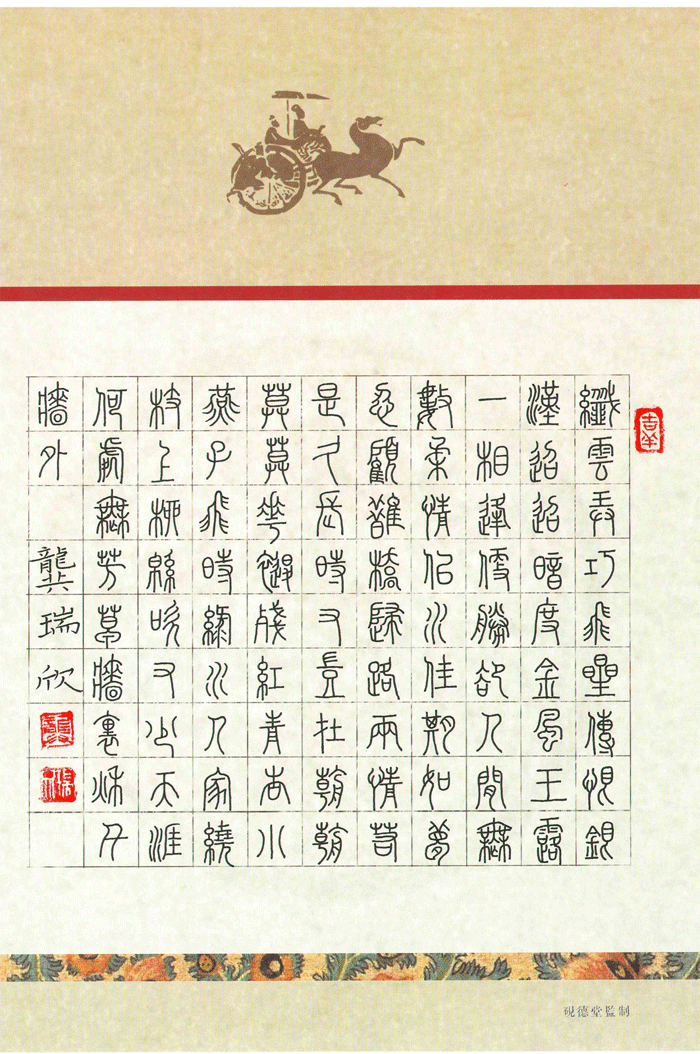 吉羊
纖雲弄巧飛星傳恨銀
漢迢迢暗度金風玉露
一相逢便勝卻人間無
數柔情似水佳期如夢
忍顧鵲橋歸路兩情若
是久長時又豈在朝朝
莫莫花褪殘紅青杏小
燕子飛時綠水人家繞
枝上柳綿吹又少天涯
何處無芳草牆裏秋千
牆外
龔瑞欣
龔
硯德堂監制